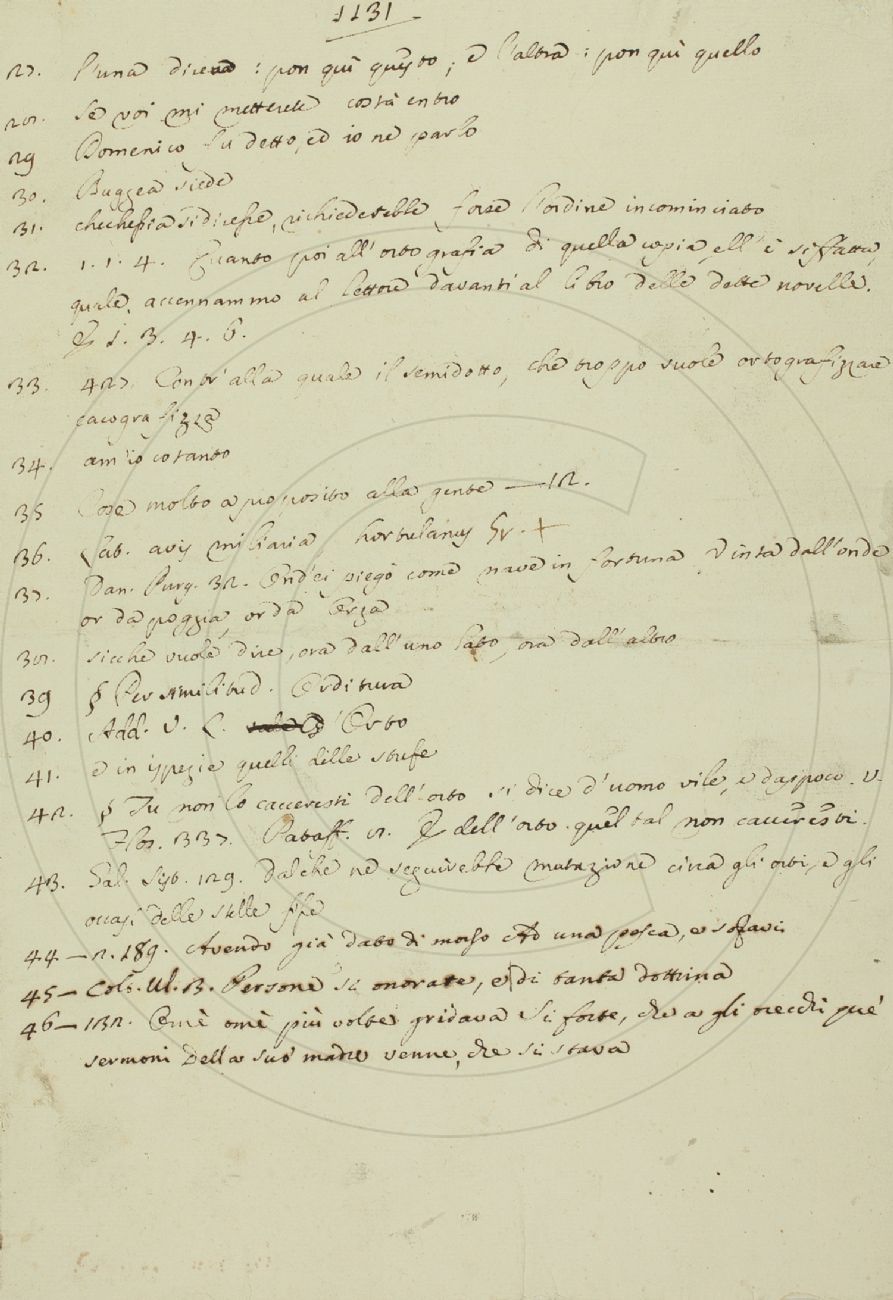 1131
27. l'una diceva : pon quì questo ; e l'altra : pon quì quello
28. Se voi mi metterete costà entro
29 Domenico fu detto, ed io ne parlo
30. Buggea siede
31. chechessia si dicesse, richiederebbe forse l'ordine incominciato
32. 1. 1. 4. Quanto poi all' ortografia di quella copia, ell' è siffatta,
quale, accennammo al lettore davanti al libro delle dette novelle.
E 1. 3. 4. 6.
33. 427. Contr' alla quale il semidotto, che troppo suole ortografizzare
cacografizza
34. am'io cotanto
35 Cose molto a proposito alla gente — 12.
36. Lat. avis miliaria, hortulanus Gr. +
37. Dan. Purg. 32. Ond' ei piegò come nave in fortuna Vinta dall'onde
or da poggia, or da Orza
38. sicche vuole dire, ora dall' uno lato, ora dall' altro
39 § Per similitud. Orditura
40. Add. V. L. Orto
41. e in ispezie quelli delle stufe
42. § Tu non lo cacceresti dell' orto si dice d' uomo vile, e dappoco. V.
Flos. 337. Pataff. 8. E dell' orto quel tal non cacceresti.
43. Gal. Sist. 129. dalche ne seguirebbe mutazione circa gli orti, e gli
occasi delle stelle fisse
44 — 2. 189. Avendo già dato di morso Ad una pesca,
45 — Coll. Ab. B. Persone sì onorate, e di tanta dottrina
46 — 132. Omè omè più volte gridava Sì forte, che a gli orecchi pue'
sermoni della sua madre venne, che si stava